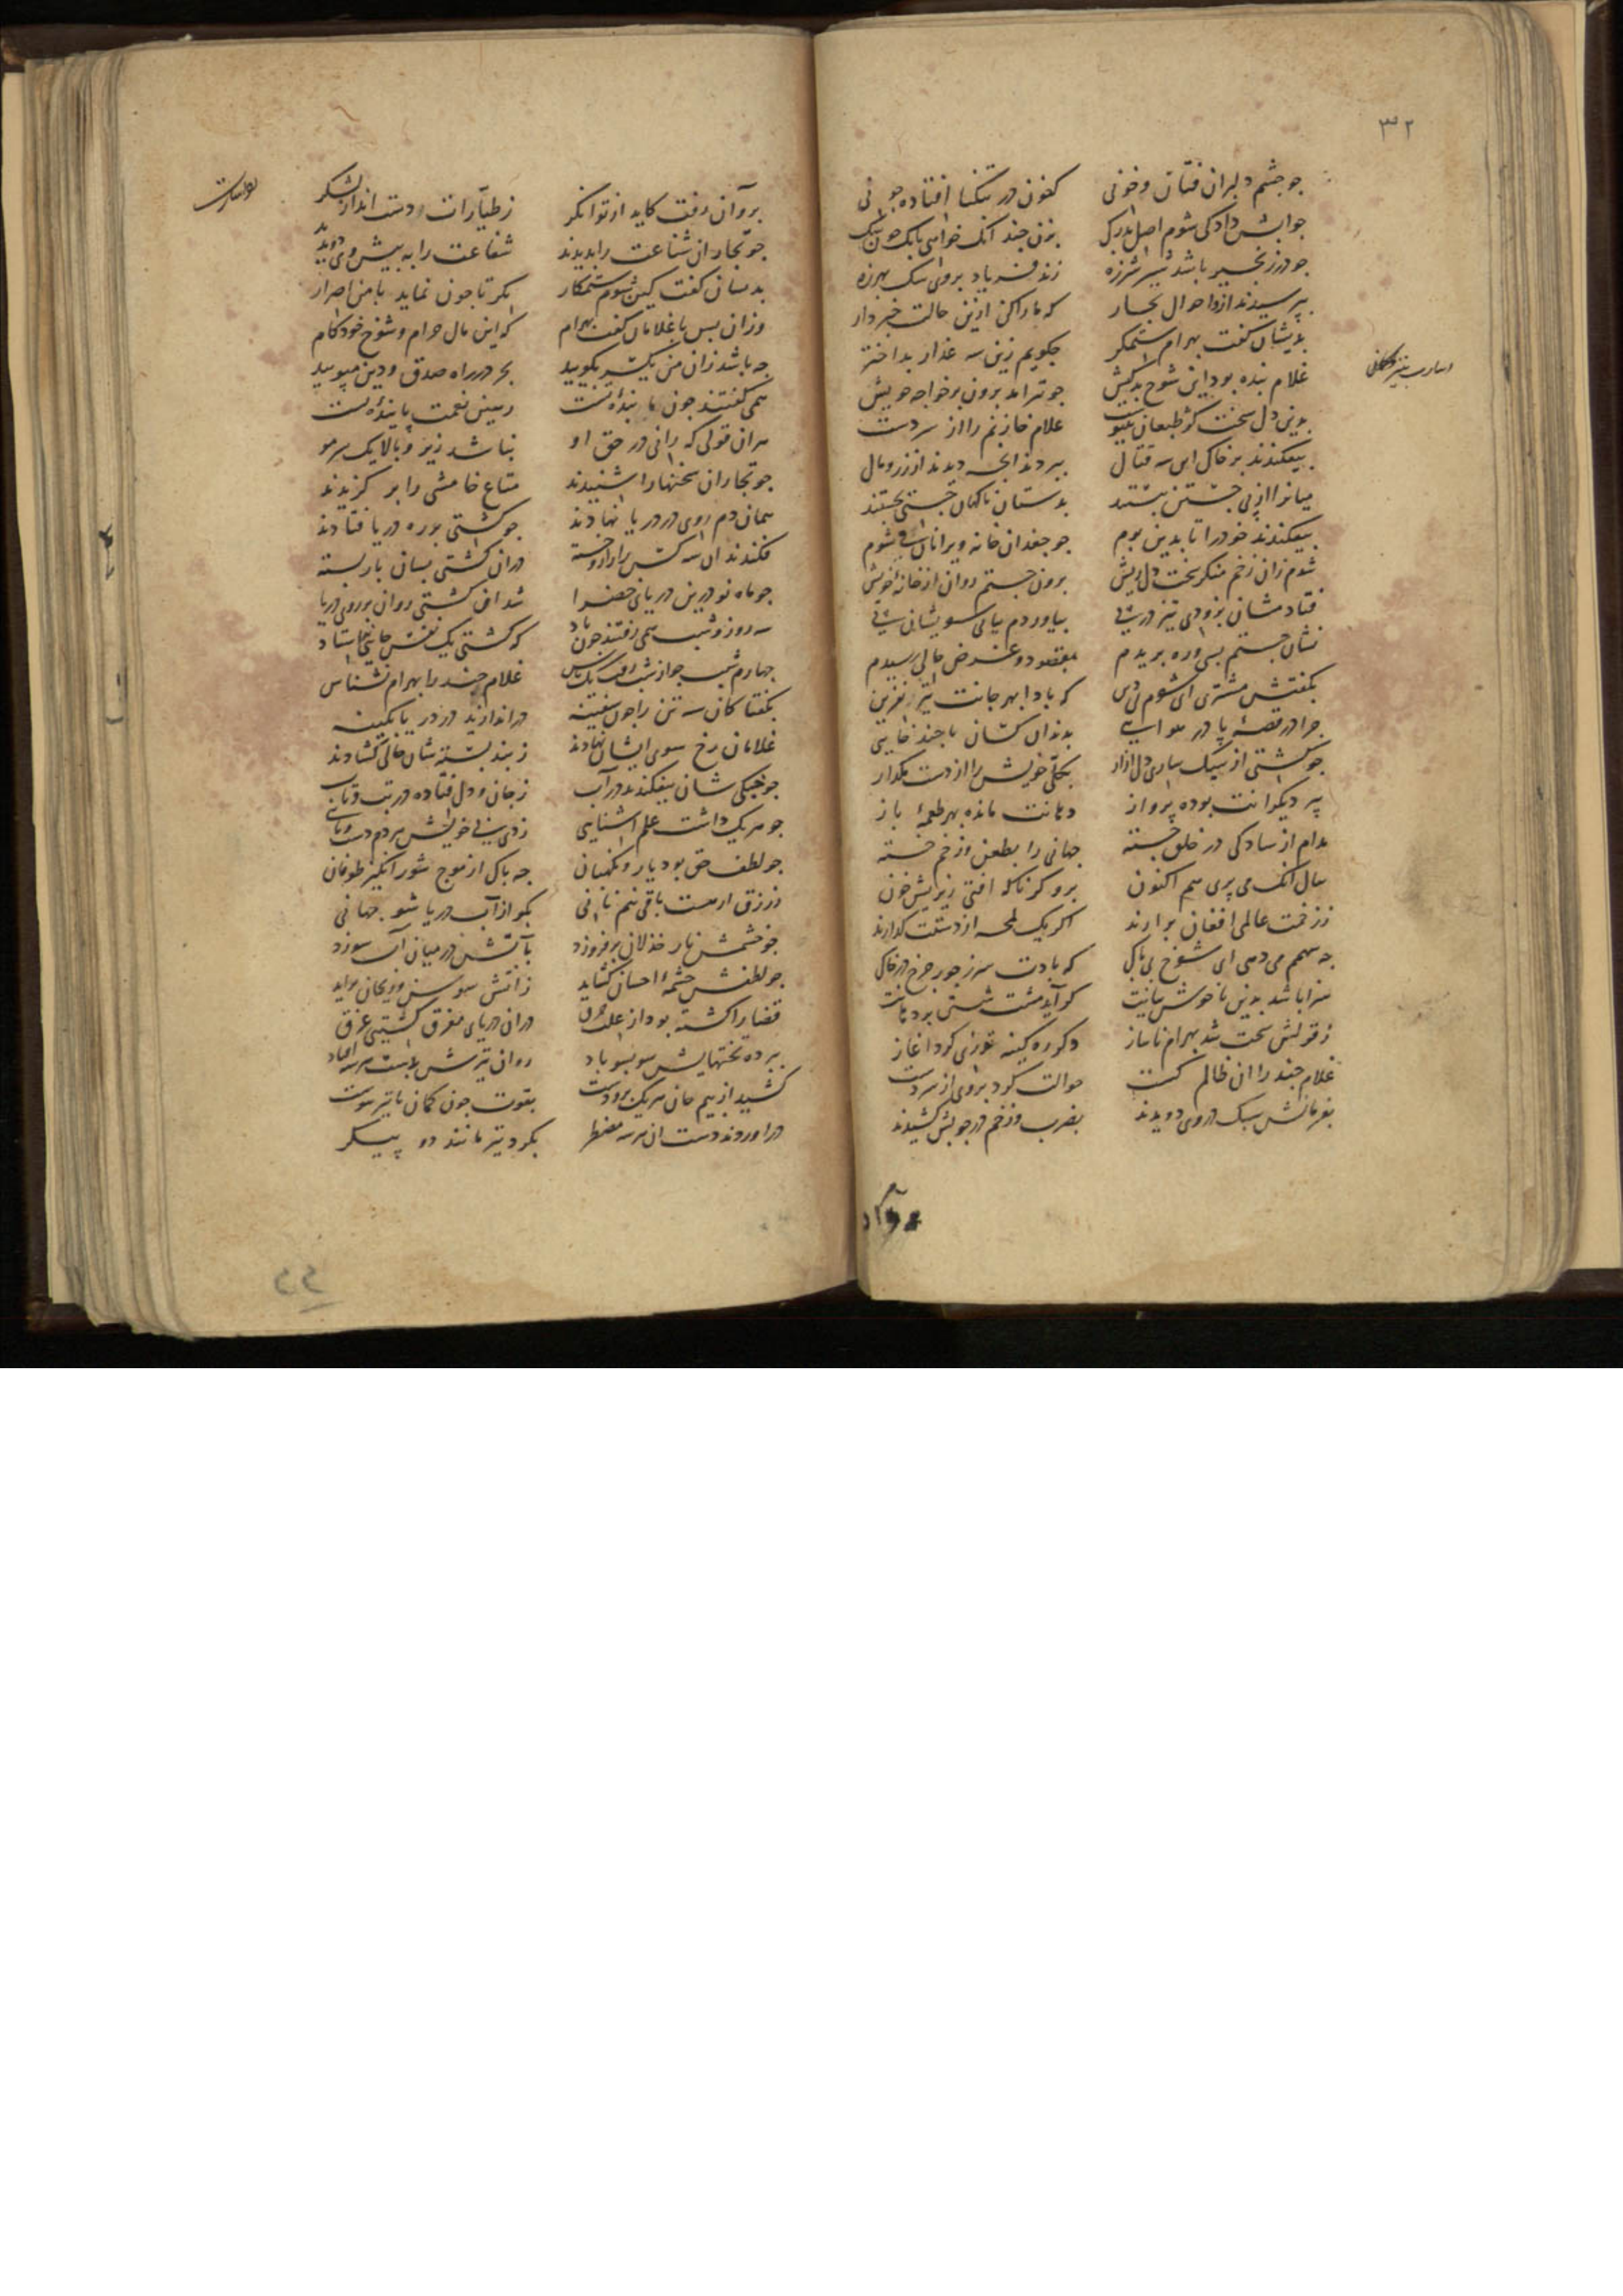 ۳۲
جو جشم دلبران فتان و خونی کنون در تنکنا افتاده جونی
جوابش داد کی شوم اصل بدرک بزن جند انک خواهی بانک جون سک
جو در زنجیر باشد شیر شرزه زند فریاد بر وی سک بهرزه
بپرسیدند ازو احوال تجار که ما را کن ازین حالت خبردار
بدیشان کفت بهرام ستمکر جکویم زین سه غدار بداختر
غلام بنده بود این شوخ بدکیش جو تیر امد برون بر خواجه خویش
بدین دل سخت کژ طبعان غلام خازنم را از سر دست
بیفکندند بر خاک این سه قتال ببردند انجه دیدند از زر و مال
میانرا از پی جستن ببستند بدستان ناکهان جستی بجستند
بیفکندند خود را تا بدین بوم جو جغدان خانه ویرانان شوم
شدم زان زخم منکر سخت دل ریش برون جستم روان از خانه خویش
فتادمشان بزودی تیز در پی بیاوردم بیابی سویشان پی
نشان جستم بسی و ره بریدم بمقصود و غرض حالی رسیدم
بکفتش مشتری ای شوم بی دین که بادا بهر جانت تیر نفرین
جرا در قصهٔ ما در هوایی بدندان کسان تا جند خایی
جو کشتی از سبک ساری دل ازار بکلی خویش را از دست مکذار
پر دیکرانت بوده پرواز دهانت مانده بهر طعمهٔ باز
مدام از سادکی در خلق جسته جهانی را بطعن و زخم خسته
سال انک می پری هم اکنون برو کر ناکه افتی زیر بیش خون
ز زخمت عالمی افغان برارند اکر یک لمحه از دستت کذارند
جه سهمم می دهی ای شوخ بی باک که بادت سر ز جور جرخ در خاک
سزا باشد بدین ناخوش بیانت کر آید مشت مشتی بر دهانت
ز قولش سخت شد بهرام ناساز دکر ره کینه توزی کرد اغاز
غلام جند را ان ظالم کست حوالت کرد بر وی از سر دست
بفرمانش سبک در وی دویدند بضرب و زخم در جوبش کشیدند
برو آن رفت کاید از توانکر ز طیارات و دست انداز لشکر
جو تجار ان شناعت را بدیدند شفاعت را به پیش وی دویدند
بدیسان کفت کین شوم ستمکار نکر تا جون نماید با من اصرار
وزان بس با غلامان کفت بهرام که این مال حرام و شوخ خودکام
جه باشد زان من یکسر بکویید بجز در راه صدق و دین مپویید
همی کفتند جون ما بنده تست رهین نعمت پاینده تست
هران قولی که رانی در حق او نباشد زیر و بالا یک سر مو
جو تجاران سخنها را شنیدند متاع خامشی را بر کزیدند
همان دم روی در دریا نهادند جو کشتی بر ره دریا فتادند
فکندند ان سه کس را زار و خسته دران کشتی بسان بار بسته
جو ماه نو درین دریای خضرا شد ان کشتی روان بر روی دریا
سه روز و شب همی رفتند جون باد که کشتی یک نفس جایی نه استاد
جهارم شب جو از شب رفت یک پاس غلام جند را بهرام نشناس
بکفتا کان سه تن را جون سفینه دراندازند در دریا بکینه
غلامان رخ سوی ایشان نهادند ز بند بسته شان حالی کشادند
جو خیکی شان بیفکندند در آب ز جان و دل فتاده در تب و تاب
جو هریک داشت علم آشنایی زدی پی خویش هر دم دست و پایی
جو لطف حق بود یار و نکهبان جه باک از موج شور انکیز طوفان
ز رزق ار هست باقی نیم نانی بکو از آب دریا شو جهانی
جو خشمش نار خذلان برفروزد بآتش در میان آب سوزد
جو لطفش جشمهٔ احسان کشاید ز آتش سوسن و ریحان براید
قضا را کشته بود از علت دران دریای مغرق کشتیی غرق
ببرده تختهایش سو بسو باد روان تیرش بدست هر سه افتاد
کشید از بیم جان هریک برو دست بقوت جون کمان با تیر پیوست
دراوردند دست ان هر سه مضطر بکرد تیر مانند دو پیکر